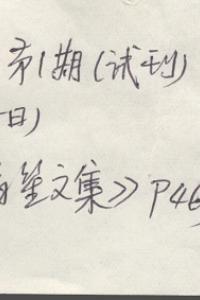 第1期(试刊)
日)
笙文集》P46